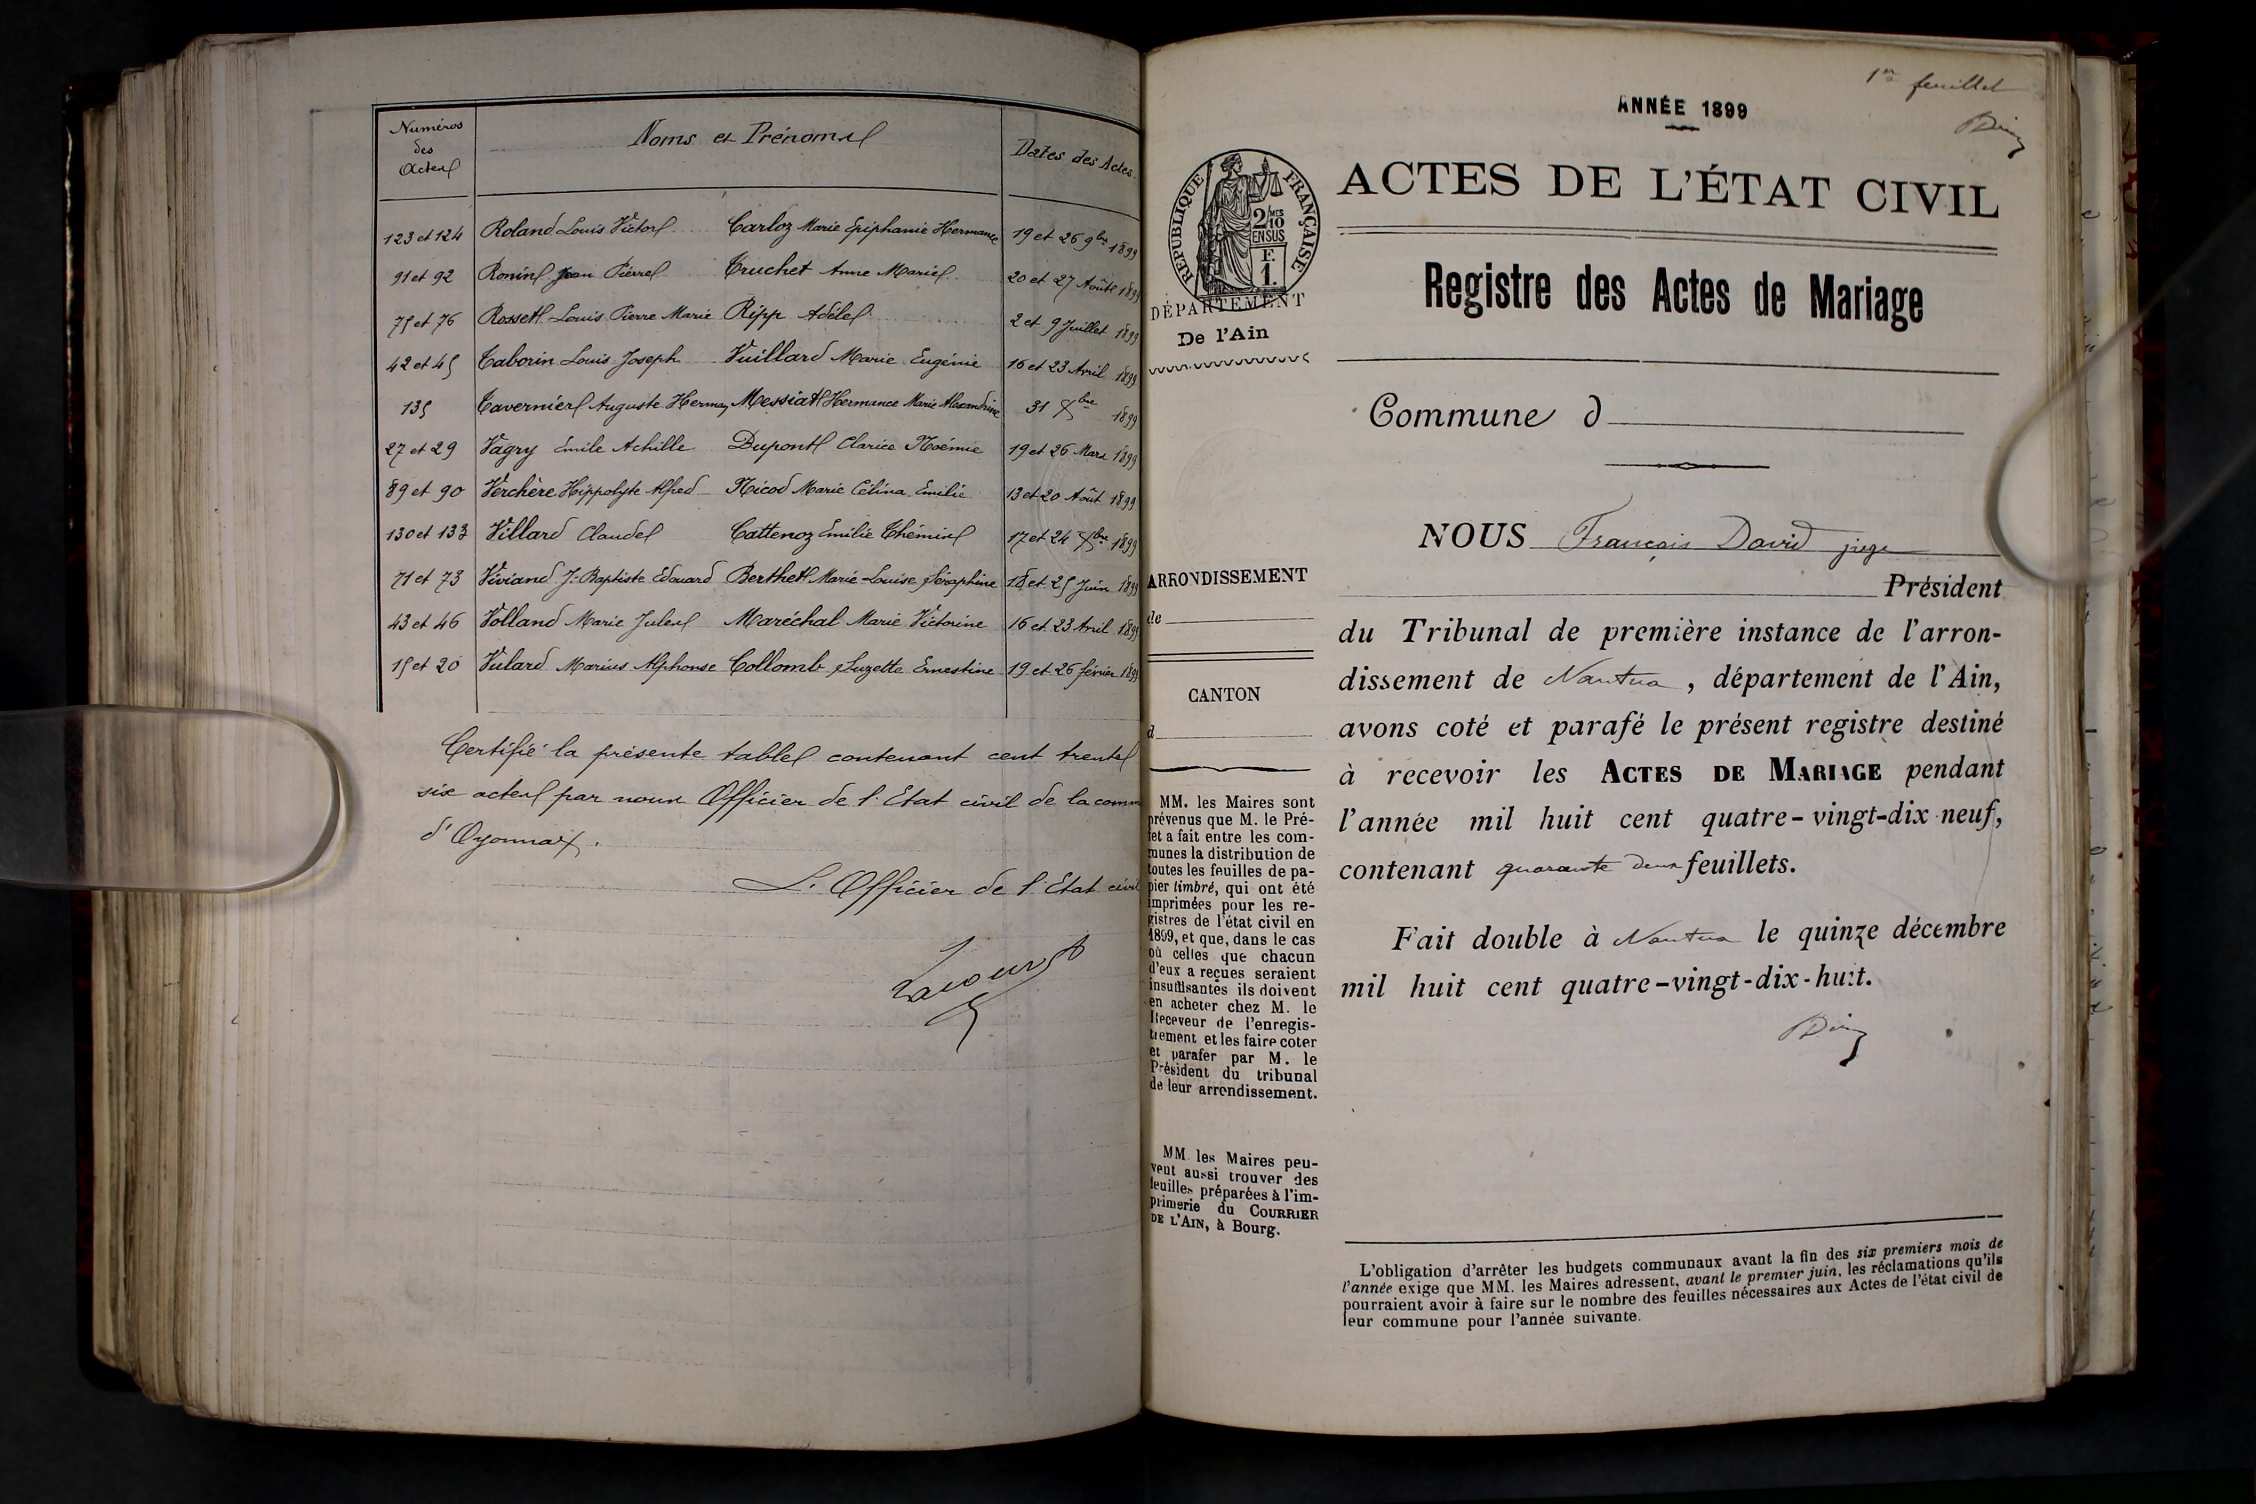 Numéros
des
Actes
Noms et Prénoms
Dates des Actes.
123 et 124 Roland Louis Victor Carloz Marie Epiphanie Hermance 19 et 26 9bre 1899
91 et 92 Ronin Jean Pierre Truchet Anne Marie 20 et 27 Août 1899
75 et 76 Rosset Louis Pierre Marie Ripp Adèle 2 et 9 Juillet 1899
42 et 45 Taborin Louis Joseph Vuillard Marie Eugénie 16 et 23 Avril 1899
135 Tavernier Auguste Messiat Hermance Marie Alexandrine 31 Xbre 1899
27 et 29 Vagry Emile Achille Dupont Clarice Noémie 19 et 26 Mars 1899
89 et 90 Verchère Hippolyte Alfred Nicod Marie Célina Emilie 13 et 20 Août 1899
130 et 133 Villard Claude Cattenoz Emilie 17 et 24 Xbre 1899
71 et 73 Viviand J-Baptiste Edouard Berthet Marie-Louise Séraphine 18 et 25 Juin 1899
43 et 46 Volland Marie Jules Maréchal Marie Victorine 16 et 23 Avril 1899
15 et 20 Vulard Marius Alphonse Collomb Suzette Ernestine 19 et 26 février 1899
Certifié la présente table contenant cent trente
six actes par nous Officier de l'Etat civil de la comm
d'Oyonnax.
L'Officier de l'Etat civil
1er feuillet
ANNÉE 1899
RÉPUBLIQUE FRANÇAISE
2/10 MES
EN SUS
F.
1.
DÉPARTEMENT
De l'Ain
ARRONDISSEMENT
de
CANTON
d
MM. les Maires sont
prévenus que M. le Pré-
fet a fait entre les com-
munes la distribution de
toutes les feuilles de pa-
pier timbré, qui ont été
imprimées pour les re-
gistres de l'état civil en
1899, et que, dans le cas
où celles que chacun
d'eux a reçues seraient
insuffisantes ils doivent
en acheter chez M. le
Receveur de l'enregis-
trement et les faire coter
et parafer par M. le
Président du tribunal
de leur arrondissement.
MM. les Maires peu-
vent aussi trouver des
feuilles préparées à l'im-
primerie du COURRIER
DE L'AIN, à Bourg.
ACTES DE L'ÉTAT CIVIL
Registre des Actes de Mariage
Commune d
NOUS François David juge
Président
du Tribunal de première instance de l'arron-
dissement de Nantua, département de l'Ain,
avons coté et parafé le présent registre destiné
à recevoir les ACTES DE MARIAGE pendant
l'année mil huit cent quatre-vingt-dix-neuf,
contenant quarante deux feuillets.
Fait double à Nantua le quinze décembre
mil huit cent quatre-vingt-dix-huit.
L'obligation d'arrêter les budgets communaux avant la fin des six premiers mois de
l'année exige que MM. les Maires adressent, avant le premier juin, les réclamations qu'ils
pourraient avoir à faire sur le nombre des feuilles nécessaires aux Actes de l'état civil de
leur commune pour l'année suivante.